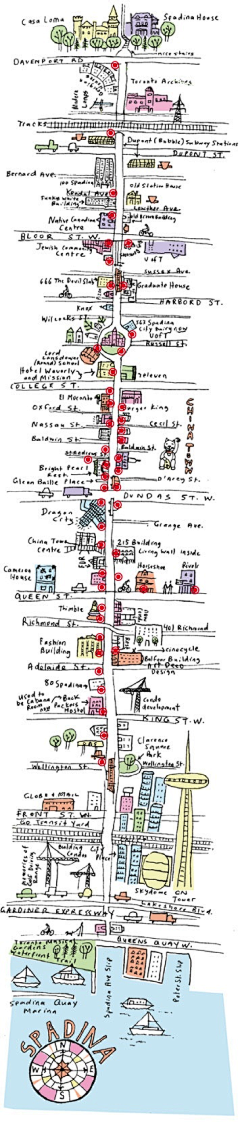 Casa Loma
Spadina House
nice stairs
DAVENPORT RD
Toronto Archives
Tracks
Dupont (Bubble) Subway Stations
DUPONT ST.
Bernard Ave.
100 Spadina
Old Station House
Kendal Ave
Lowther Ave.
Funky white Building
Native Canadian Centre
BLOOR ST. W.
Jewish Community Centre
U of T
Sussex Ave.
666 The Devil's
Graduate House
HARBORD ST.
Knox
Willcocks St.
U of T
Russell St.
Lord Lansdowne (Round) School
Hotel Waverly and Mission
7 eleven
COLLEGE ST.
El Mocambo
Burger King
Oxford St.
Nassau St.
Cecil St.
Baldwin St.
Baldwin St.
CHINATOWN
Bright Pearl Rest.
D'Arcy St.
Glen Baillie Place
DUNDAS ST. W.
Dragon City
Grange Ave.
China Town Centre
215 Building
Living wall inside
Cameron House
Horseshoe
Rivoli
QUEEN ST.
Thimble
Richmond St.
401 Richmond
Fashion Building
Balfour Building
Art Deco Design
Adelaide St.
80 Spadina
Condo development
Used to be Cabana Room
Back Packers Hostel
KING ST. W.
Clarence Square Park
Wellington St.
Wellington St.
Globe & Mail
FRONT ST. W.
Go Transit Yard
Skydome
CN Tower
Lakeshore Blvd.
GARDINER EXPRESSWAY
QUEENS QUAY W.
Toronto Music Gardens
Waterfront Trail
Spadina Ave Slip
Peter St. Slip
Spadina Quay Marina
SPADINA
N
W
E
S